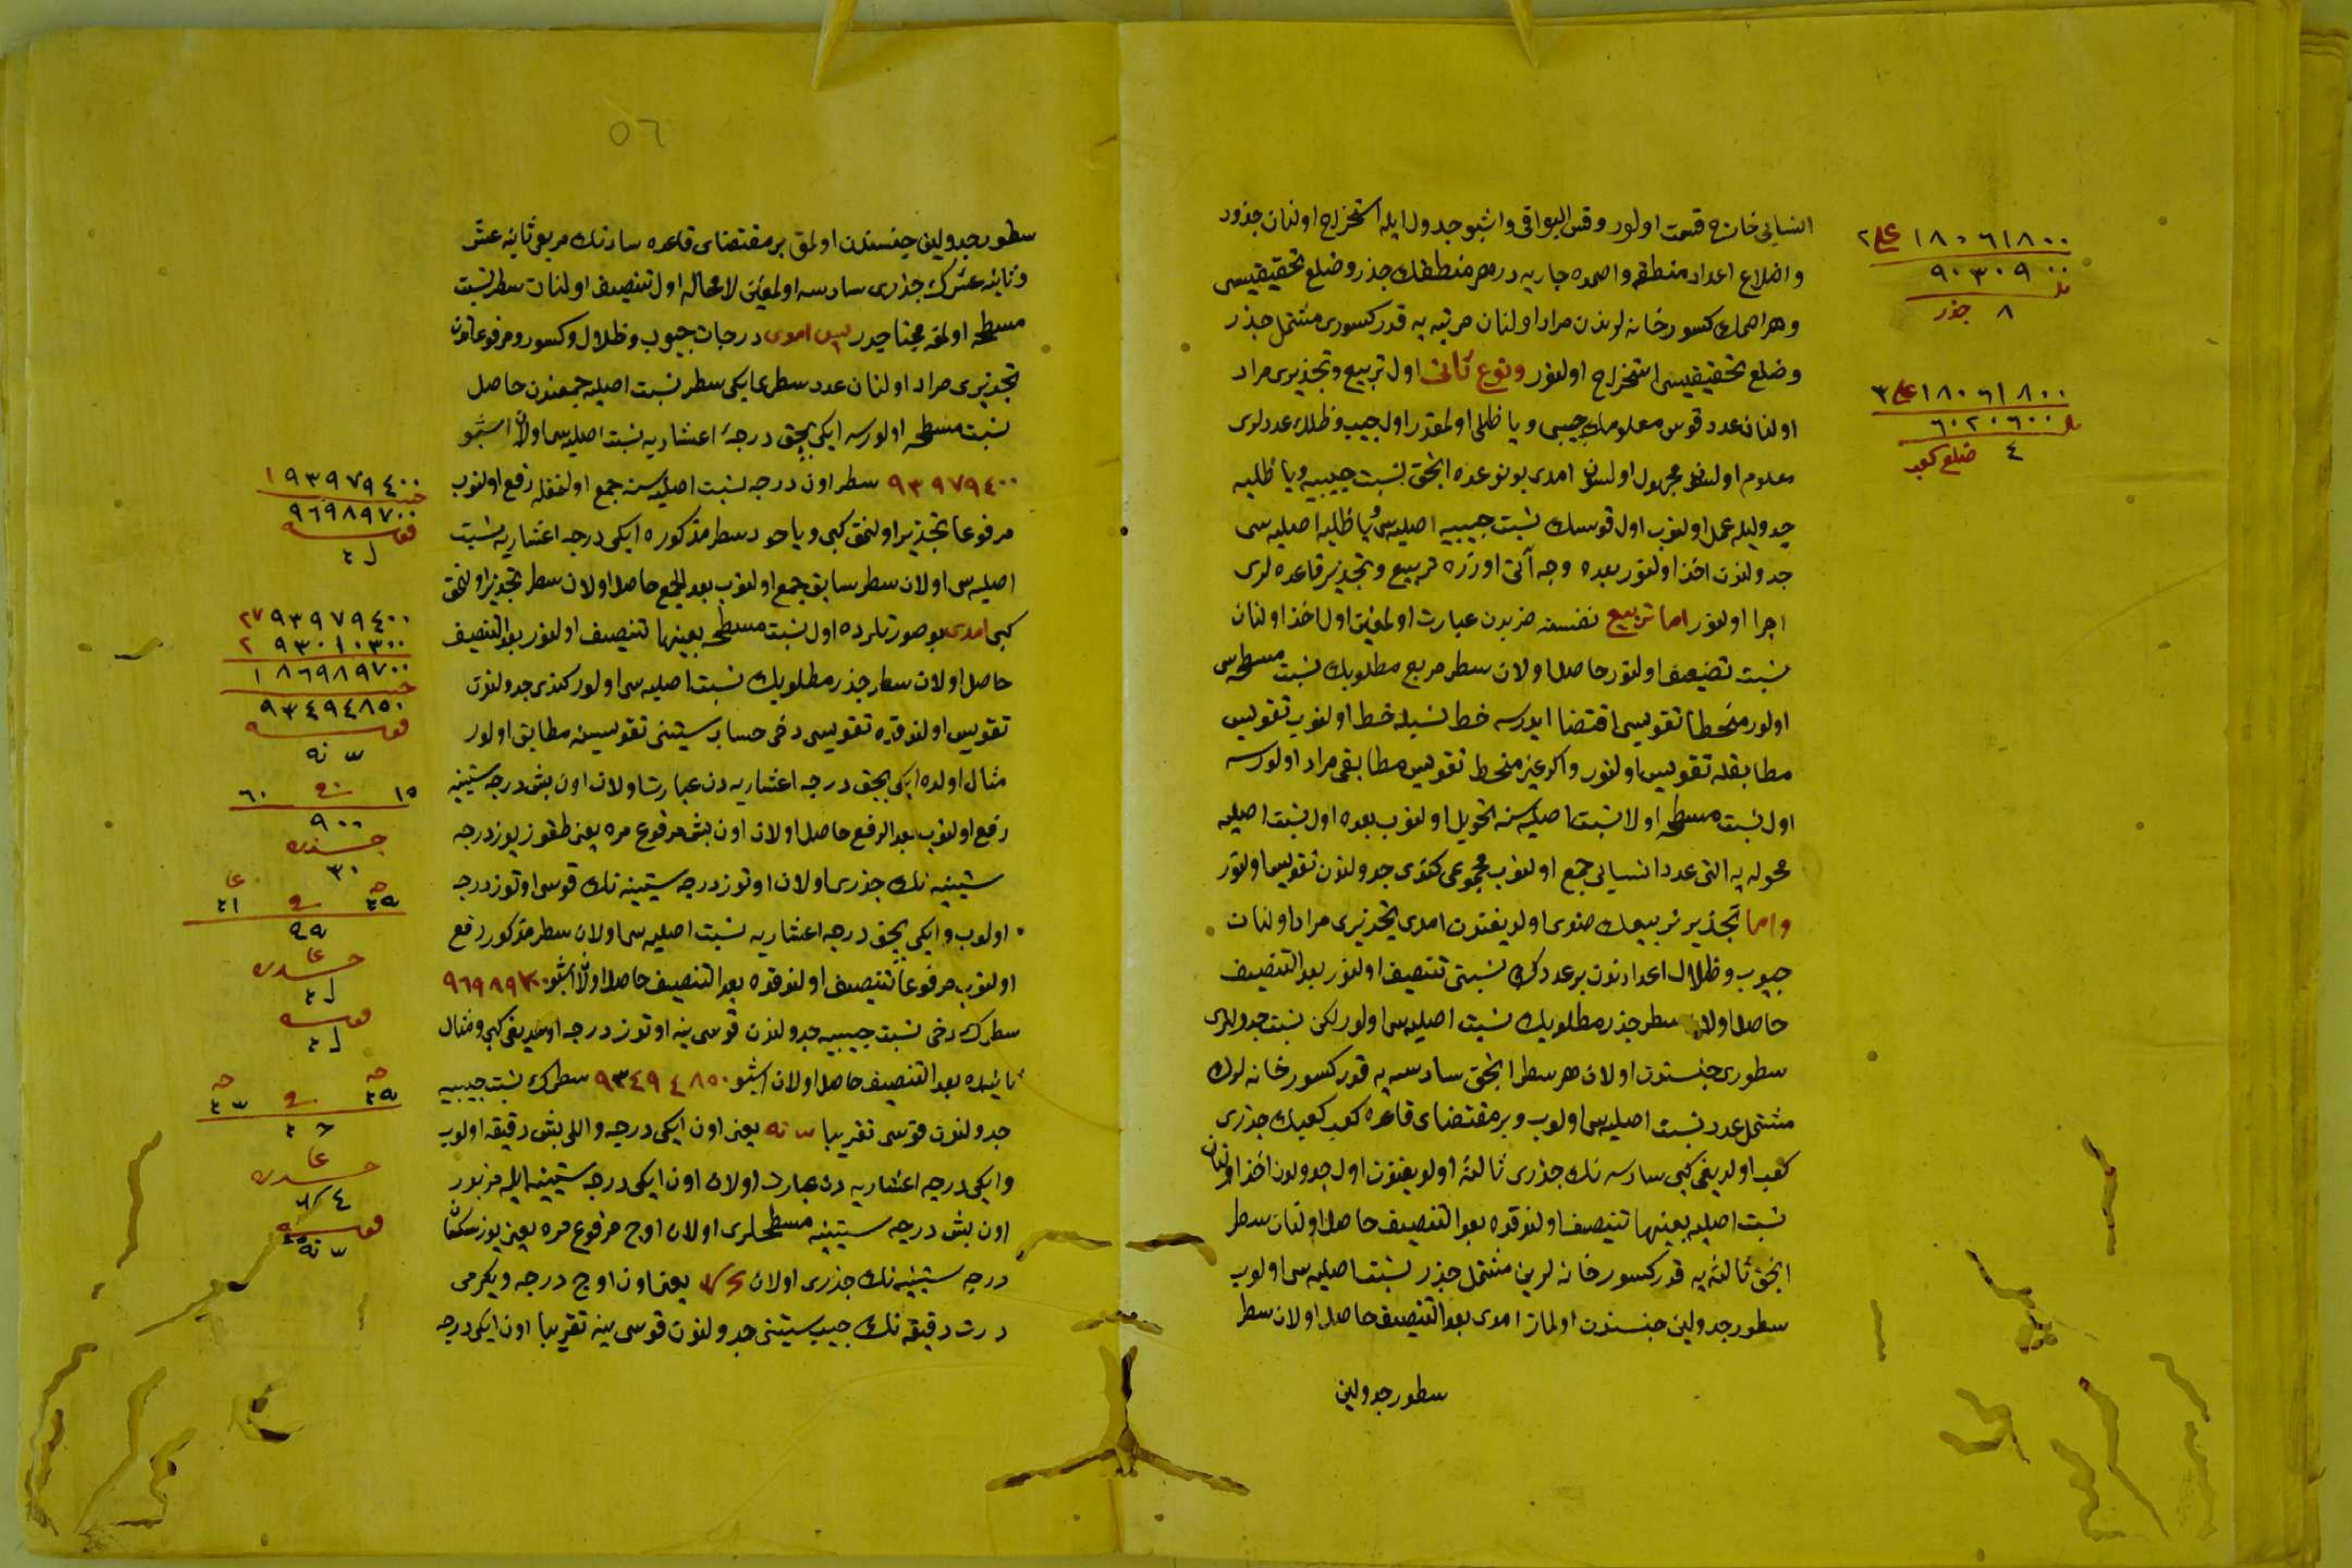 انسیانی خارج قسمت اولور وقس البواقی واشبو جدول ایله استخراج اولنان جذور
واضلاع اعداد منطقه واصمده جاریه در هر منطقك جذر وضلع تحقیقیسی
وهر اصمك کسور خانه لرندن مراد اولنان مرتبه یه قدر کسوری مشتمل جذر
وضلع تحقیقیسی استخراج اولنور ونوع ثانی اول تربیع وتجذیری مراد
اولنان عدد قوس معلومك جیبی ویا ظلی اولمقدر اول جیب وظللك عددلری
معلوم اولسون مجهول اولسون امدی بو نوعده انجق نسبت جیبیه ویا ظلیه
جدولیله عمل اولنوب اول قوسك نسبت جیبیه اصلیه سی ویا ظلیه اصلیه سی
جدولندن اخذ اولنور بعده وجه آتی اوزره تربیع وتجذیر قاعده لری
اجرا اولنور اما تربیع نفسنه ضربدن عبارت اولمغین اول اخذ اولنان
نسبت تضعیف اولنور حاصل اولان سطر مربع مطلوبك نسبت مسطحه سی
اولور منحطا تقویسی اقتضا ایدرسه خط نسیله خط اولنوب تقویس
مطابقله تقویس اولنور واکر غیر منحط تقویس مطابقی مراد اولورسه
اول نسبت مسطحه اولا نسبت اصلیه سنه تحویل اولنوب بعده اول نسبت اصلیه
محوله یه التی عدد انسیانی جمع اولنوب مجموعی کندی جدولندن تقویس اولنور
واما تجذیر تربیعك ضدی اولدیغندن امدی تجذیری مراد اولنان
جیوب وظلال اعدادندن بر عددك نسبتی تنصیف اولنور بعد التنصیف
حاصل اولان سطر جذر مطلوبك نسبت اصلیه سی اولور لکن نسبت جدوللری
سطوری جنسندن اولان هر سطر انجق سادسه یه قدر کسور خانه لرك
مشتمل عدد نسبت اصلیه سی اولوب وبر مقتضای قاعده کعب کعبك جذری
کعب اولدیغی کبی سادسه نك جذری ثالثه اولدیغندن اول جدولدن اخذ اولنان
نسبت اصلیه بعینها تنصیف اولندقده بعد التنصیف حاصل اولنان سطر
انجق ثالثه یه قدر کسور خانه لرین مشتمل جذر نسبت اصلیه سی اولوب
سطور جدولین جنسندن اولماز امدی بعد التنصیف حاصل اولان سطر
سطور جدولین
١٨٠٦١٨٠٠ علی ٢
٩٠٣٠٩٠٠
٨ جذر
١٨٠٦١٨٠٠ علی ٣
٦٠٢٠٦٠٠
٤ ضلع کعب
٥٦
سطور جدولین جنسندن اولمق بر مقتضای قاعده سادسه نك مربعی ثانیه عشر
وثانیه عشرك جذری سادسه اولمغین لا محاله اول تنصیف اولنان سطر نسبت
مسطحه اولمغه محتاجدر پس امدی درجات جیوب وظلال وکسور ومرفوعاتدن
تجذیری مراد اولنان عدد سطری ایکی سطر نسبت اصلیه جمعندن حاصل
نسبت مسطحه اولورسه ایکی بچق درجهٔ اعشاریه نسبت اصلیه سی اولان اشبو
٩٣٩٧٩٤٠٠ سطر اون درجه نسبت اصلیه سنه جمع اولنمغله رفع اولنوب
مرفوعا تجذیر اولنمق کبی ویاخود سطر مذکوره ایکی درجه اعشاریه نسبت
اصلیه سی اولان سطر سابق جمع اولنوب بعد الجمع حاصل اولان سطر تجذیر اولنمق
کبی امدی بو صورتلرده اول نسبت مسطحه بعینها تنصیف اولنور بعد التنصیف
حاصل اولان سطر جذر مطلوبك نسبت اصلیه سی اولور کندی جدولندن
تقویس اولندقده تقویسی دخی حساب ستینی تقویسنه مطابق اولور
مثال اولده ایکی بچق درجه اعشاریه دن عبارت اولان اون بش درجه ستینیه
رفع اولنوب بعد الرفع حاصل اولان اون بش مرفوع مره یعنی طقوز یوز درجه
ستینیه نك جذری اولان اوتوز درجه ستینیه نك قوسی اوتوز درجه
اولوب وایکی بچق درجه اعشاریه نسبت اصلیه سی اولان سطر مذکور رفع
اولنوب مرفوعا تنصیف اولندقده بعد التنصیف حاصل اولان اشبو ٩٦٩٨٩٧٠٠
سطرك دخی نسبت جیبیه جدولندن قوسی ینه اوتوز درجه اولدیغی کبی ومثال
ثانیده بعد التنصیف حاصل اولان اشبو ٩٣٤٩٤٨٥٠ سطرك نسبت جیبیه
جدولندن قوسی تقریبا یعنی اون ایکی درجه واللی بش دقیقه اولوب
وایکی درجه اعشاریه دن عبارت اولان اون ایکی درجه ستینیه ایله مزبور
اون بش درجه ستینیه مسطحلری اولان اوج مرفوع مره یعنی یوز سکسان
درجه ستینیه نك جذری اولان یعنی اون اوج درجه ویکرمی
درت دقیقه نك جیب ستینی جدولندن قوسی ینه تقریبا اون ایکی درجه
١٩٣٩٧٩٤٠٠
٩٦٩٨٩٧٠٠
قوسه
٩٣٩٧٩٤٠٠
٩٣٠١٠٣٠٠
١٨٦٩٨٩٧٠٠
٩٣٤٩٤٨٥٠
قوسه
١٥ فی ٦٠
٩٠٠
جذره
٣٠
قوسه
قوسه